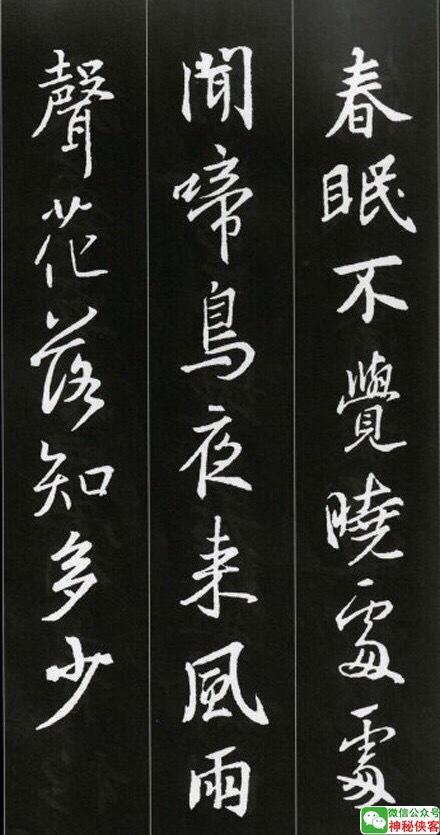 春眠不覺曉處處
聞啼鳥夜来風雨
聲花落知多少
微信公众号
神秘侠客